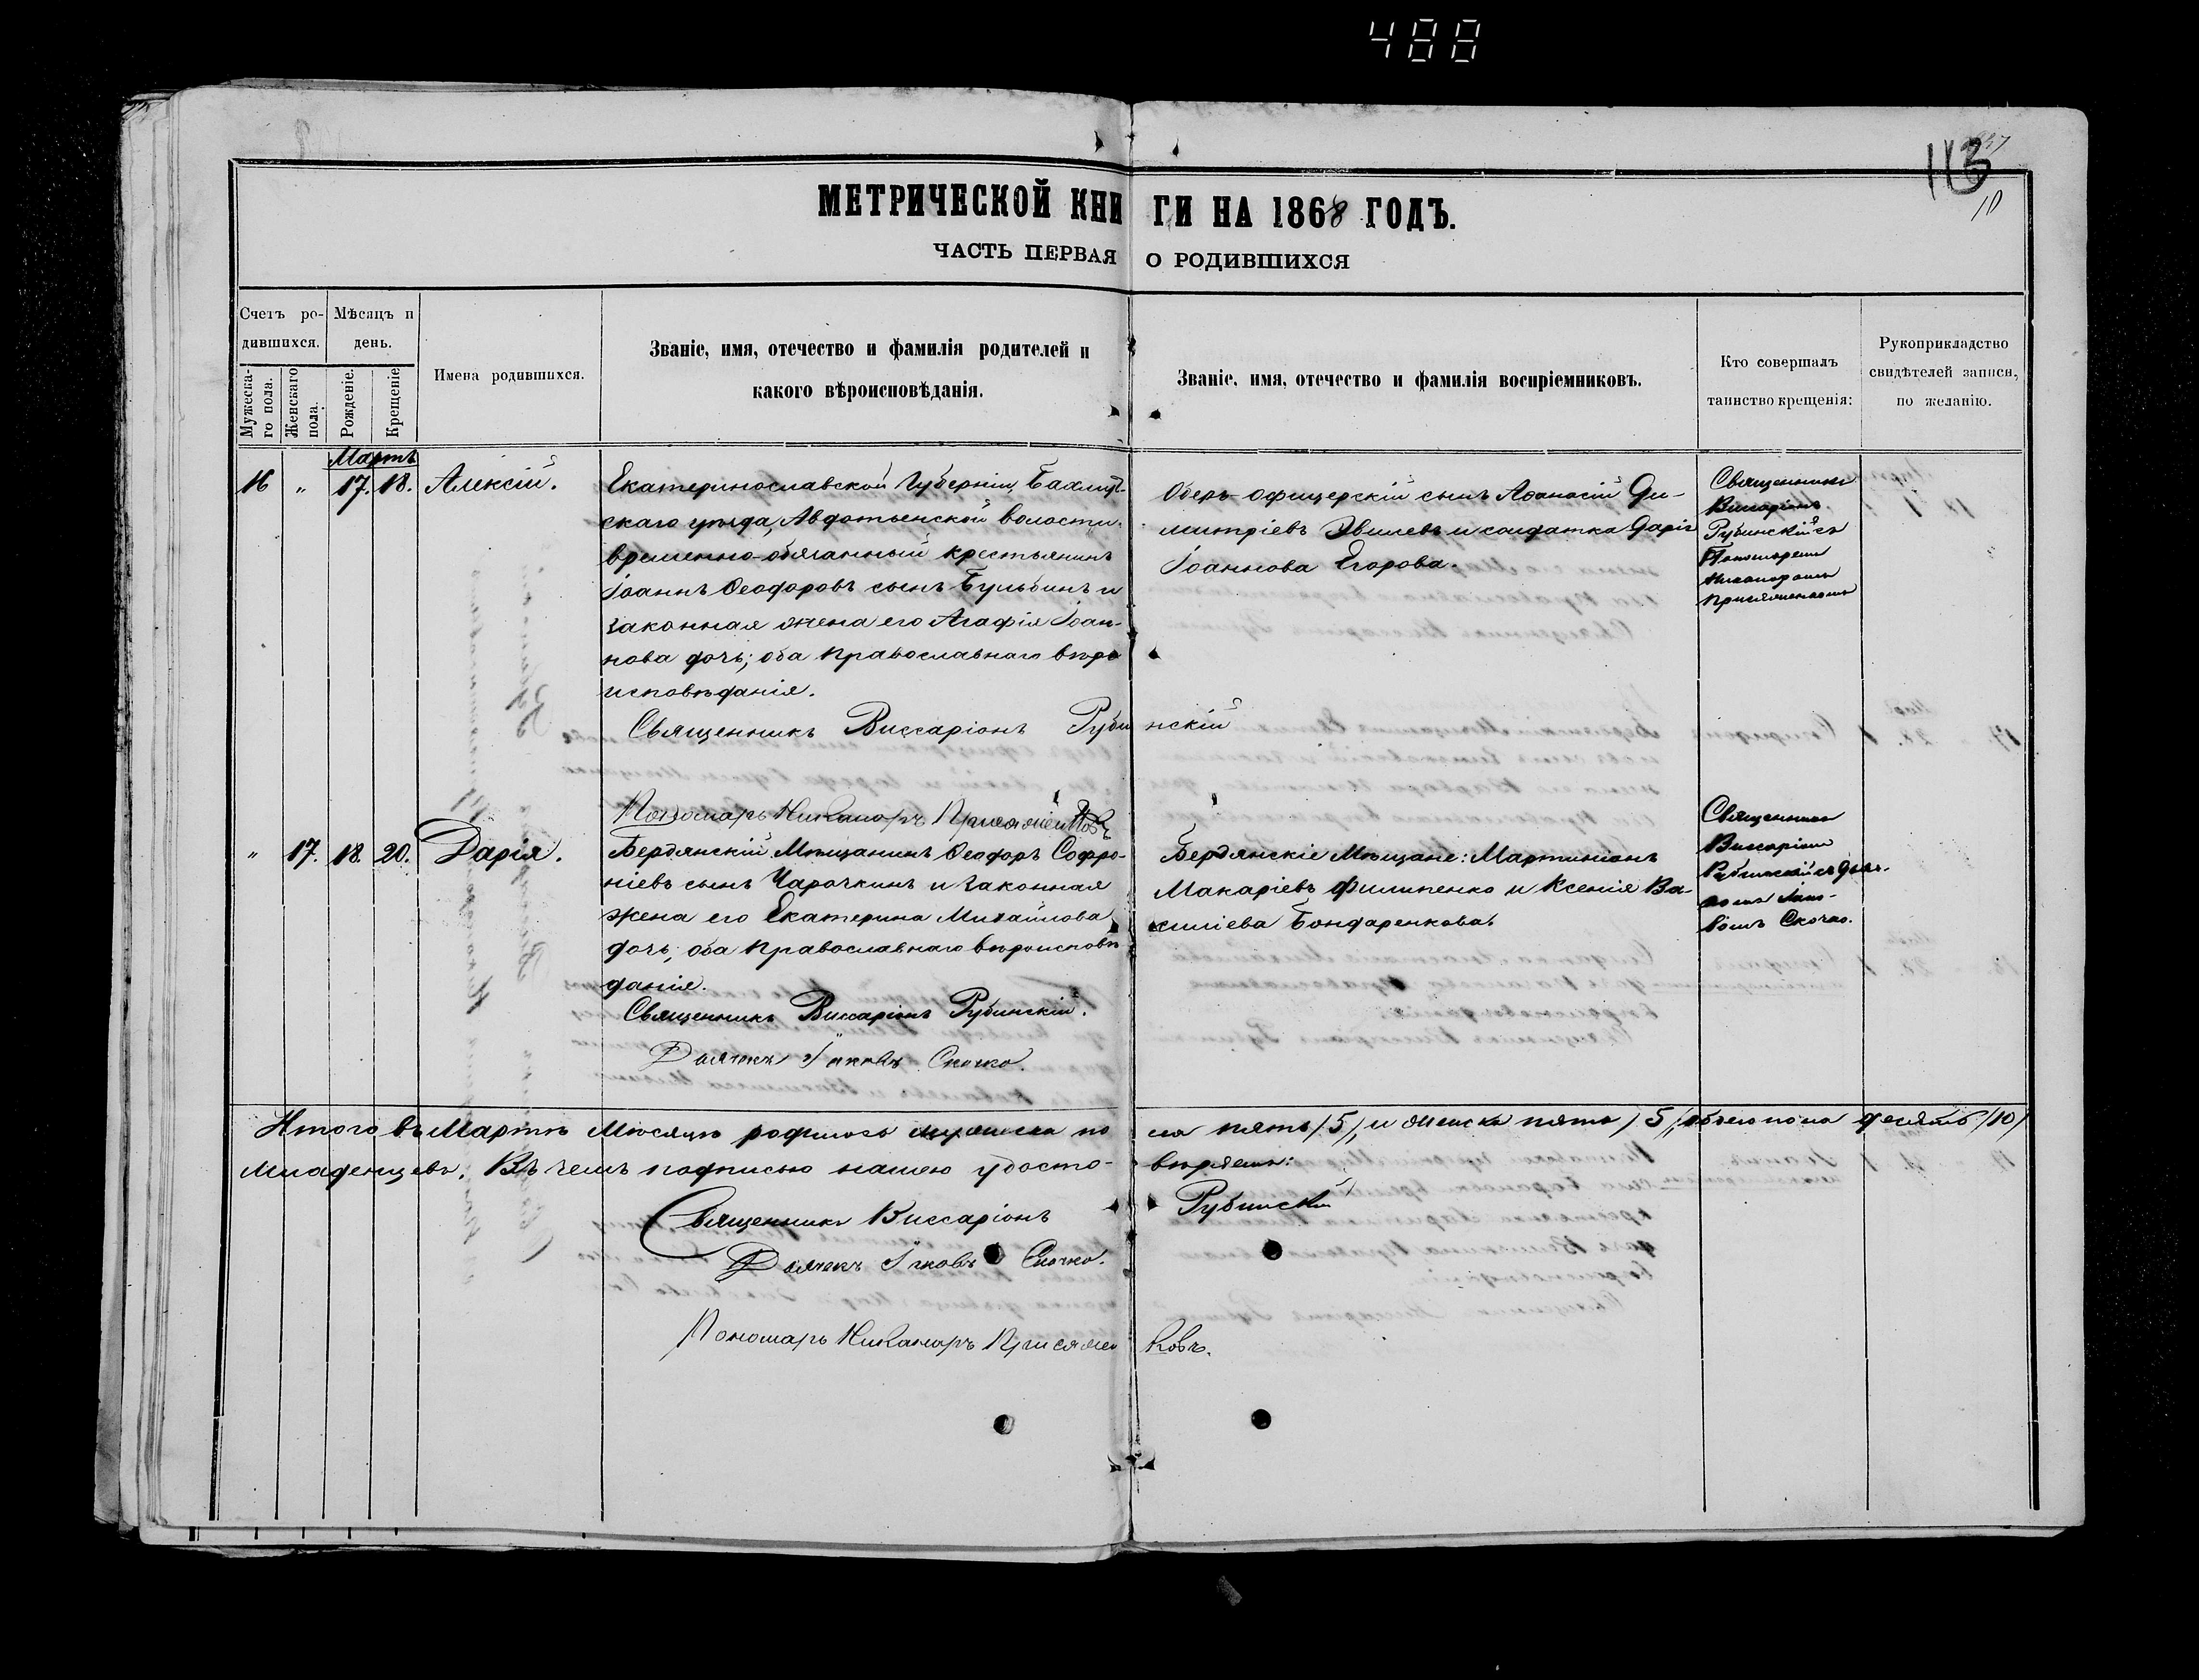 488
113
10
МЕТРИЧЕСКОЙ КНИГИ НА 1868 ГОДЪ.
ЧАСТЬ ПЕРВАЯ О РОДИВШИХСЯ
Счетъ ро-
дившихся.
Мѣсяцъ и
день.
Мужеска-
го пола.
Женскаго
пола.
Рожденіе.
Крещеніе
Имена родившихся.
Званіе, имя, отечество и фамилія родителей и
какого вѣроисповѣданія.
Званіе, имя, отечество и фамилія воспріемниковъ.
Кто совершалъ
таинство крещенія:
Рукоприкладство
свидѣтелей записи,
по желанію.
Мартъ
16 „ 17. 18. Алексій.
Екатеринославской Губерніи, Бахмут-
скаго уѣзда, Авдотьенской волости.
временно-обязанный крестьянинъ
Іоаннъ Ѳеодоровъ сынъ Бульбинъ и
законная жена его Агафія Іоан-
нова дочь; оба православнаго вѣро
исповѣданія.
Оберъ-офицерскій сынъ Аѳанасій Ди-
митріевъ и солдатка Дарія
Іоаннова Егорова.
Священникъ
Виссаріонъ
Рубинскій съ
Пономаремъ
Никаноромъ
Присяженковымъ
Священникъ Виссаріонъ Рубинскій
Пономарь Никаноръ Присяженковъ
„ 17. 18. 20. Дарія.
Бердянскій Мѣщанинъ Ѳеодоръ Софро-
ніевъ сынъ Чарочкинъ и законная
жена его Екатерина Михайлова
дочь; оба православнаго вѣроисповѣ
данія.
Бердянскіе Мѣщане: Мартиніанъ
Макаріевъ Филипенко и Ксенія Ва-
силіева Бондаренкова.
Священникъ
Виссаріонъ
Рубинскій съ Дьяч-
комъ Іако-
вомъ Скочко.
Священникъ Виссаріонъ Рубинскій.
Дьячекъ Іаковъ Скочко.
Итого въ Мартѣ Мѣсяцѣ родилось мужеска пола пять /5/, и женска пять /5/, обоего пола десять /10/
младенцевъ. Въ чемъ подписью нашею удостовѣряемъ:
Священникъ Виссаріонъ Рубинскій
Дьячекъ Іаковъ Скочко.
Пономарь Никаноръ Присяженковъ.